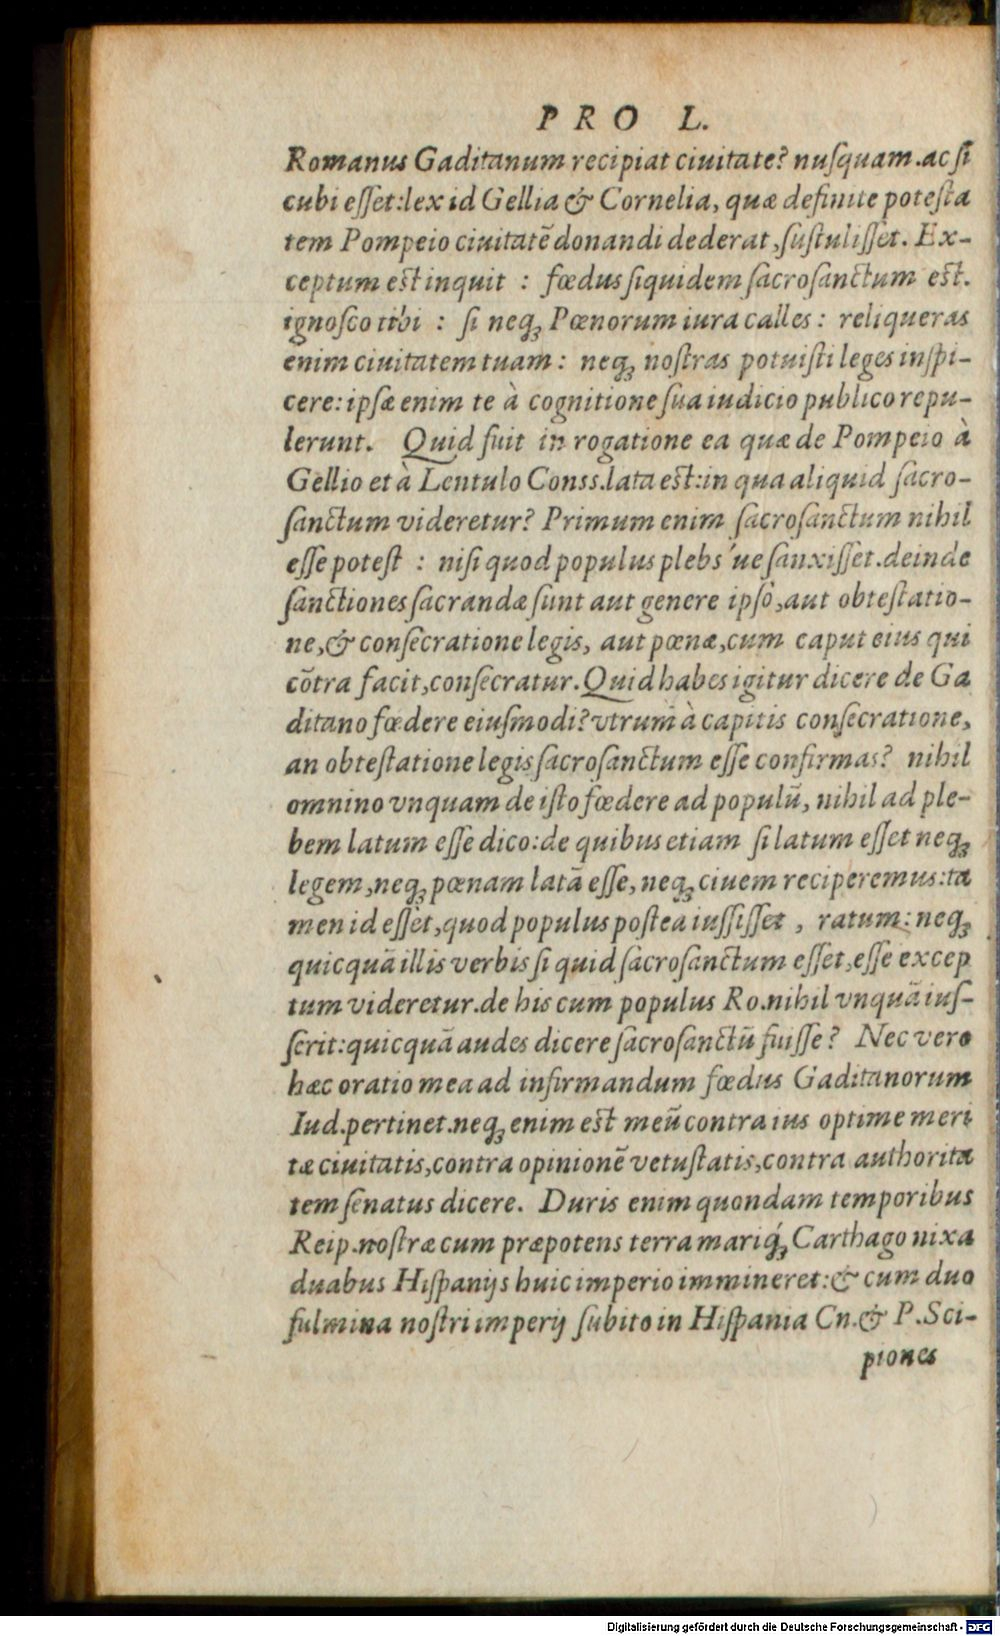 PRO L.
Romanus Gaditanum recipiat ciuitate? nuſquam.ac ſi
cubi eſſet:lex id Gellia & Cornelia, quæ definite poteſta
tem Pompeio ciuitatē donandi dederat,ſuſtuliſſet. Ex-
ceptum est inquit : fœdus ſiquidem ſacroſanctum est.
ignoſco tibi : ſi neq; Pœnorum iura calles: reliqueras
enim ciuitatem tuam: neq; noſtras potuiſti leges inſpi-
cere:ipſæ enim te à cognitione ſua iudicio publico repu-
lerunt. Quid fuit in rogatione ea quæ de Pompeio à
Gellio et à Lentulo Conss.lata est:in qua aliquid ſacro-
ſanctum videretur? Primum enim ſacroſanctum nihil
eſſe poteſt : niſi quod populus plebs 'ue ſanxiſſet.deinde
ſanctiones ſacrandæ ſunt aut genere ipſo,aut obteſtatio-
ne,& conſecratione legis, aut pœnæ,cum caput eius qui
cōtra facit,conſecratur.Quid habes igitur dicere de Ga
ditano fœdere eiuſmodi?vtrum à capitis conſecratione,
an obteſtatione legis ſacroſanctum eſſe confirmas? nihil
omnino vnquam de iſto fœdere ad populū, nihil ad ple-
bem latum eſſe dico:de quibus etiam ſi latum eſſet neq;
legem,neq; pœnam latā eſſe, neq; ciuem reciperemus:ta
men id eſſet,quod populus poſtea iuſſiſſet , ratum: neq;
quicquā illis verbis ſi quid ſacroſanctum eſſet,eſſe excep
tum videretur.de his cum populus Ro.nihil vnquā iuſ-
ſerit:quicquā audes dicere ſacroſanctū fuiſſe? Nec vero
hæc oratio mea ad infirmandum fœdus Gaditanorum
Iud.pertinet.neq; enim est meū contra ius optime meri
tæ ciuitatis,contra opinionē vetuſtatis,contra authorita
tem ſenatus dicere. Duris enim quondam temporibus
Reip.noſtræ cum præpotens terra mariq́; Carthago nixa
duabus Hiſpanijs huic imperio immineret:& cum duo
fulmina noſtri imperij ſubito in Hiſpania Cn.& P.Sci-
piones
Digitalisierung gefördert durch die Deutsche Forschungsgemeinschaft - DFG